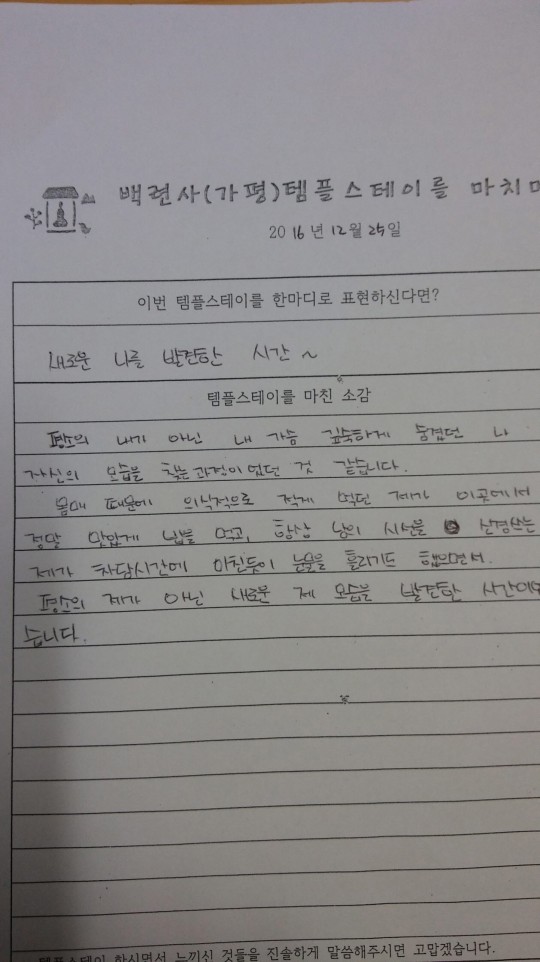 백련사(가평)템플스테이를 마치며
2016년 12월 25일
이번 템플스테이를 한마디로 표현하신다면?
새로운 나를 발견한 시간~
템플스테이를 마친 소감
평소의 내가 아닌 내 가슴 깊숙하게 숨겼던 나
자신의 모습을 찾는 과정이었던 것 같습니다.
몸매 때문에 의식적으로 적게 먹던 제가 이곳에서
정말 맛있게 밥을 먹고, 항상 남의 시선을 신경쓰는
제가 차담시간에 미친듯이 눈물을 흘리기도 했으면서.
평소의 제가 아닌 새로운 제 모습을 발견한 시간이었
습니다.
템플스테이 하시면서 느끼신 것들을 진솔하게 말씀해주시면 고맙겠습니다.